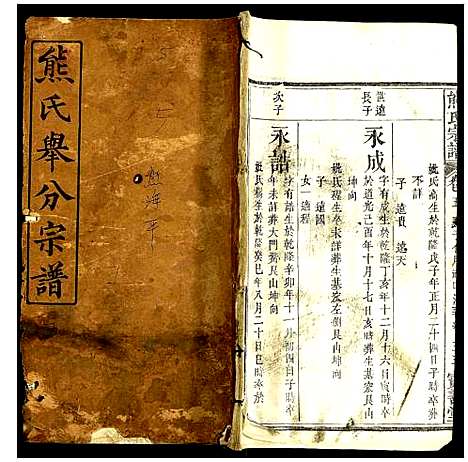 熊氏舉分宗譜
熊海平
熊氏宗譜
卷
姚氏高生於乾隆戊子年正月二十四日子時卒葬
不詳
子 遠貴 遠天
世遠長子
永成
字有成生於乾隆丁亥年十二月十六日亥時卒
於道光己酉年十月十七日亥時葬生基宏艮山
坤向
姚氏程生卒未詳葬生基宏左側艮山坤向
子 遠國
女一 適程
次子
永誥
字有誥生於乾隆辛卯年十一月初四日子時卒
年未詳葬大門蔸艮山坤向
姚氏 生於乾隆癸巳年八月二十日巳時卒於